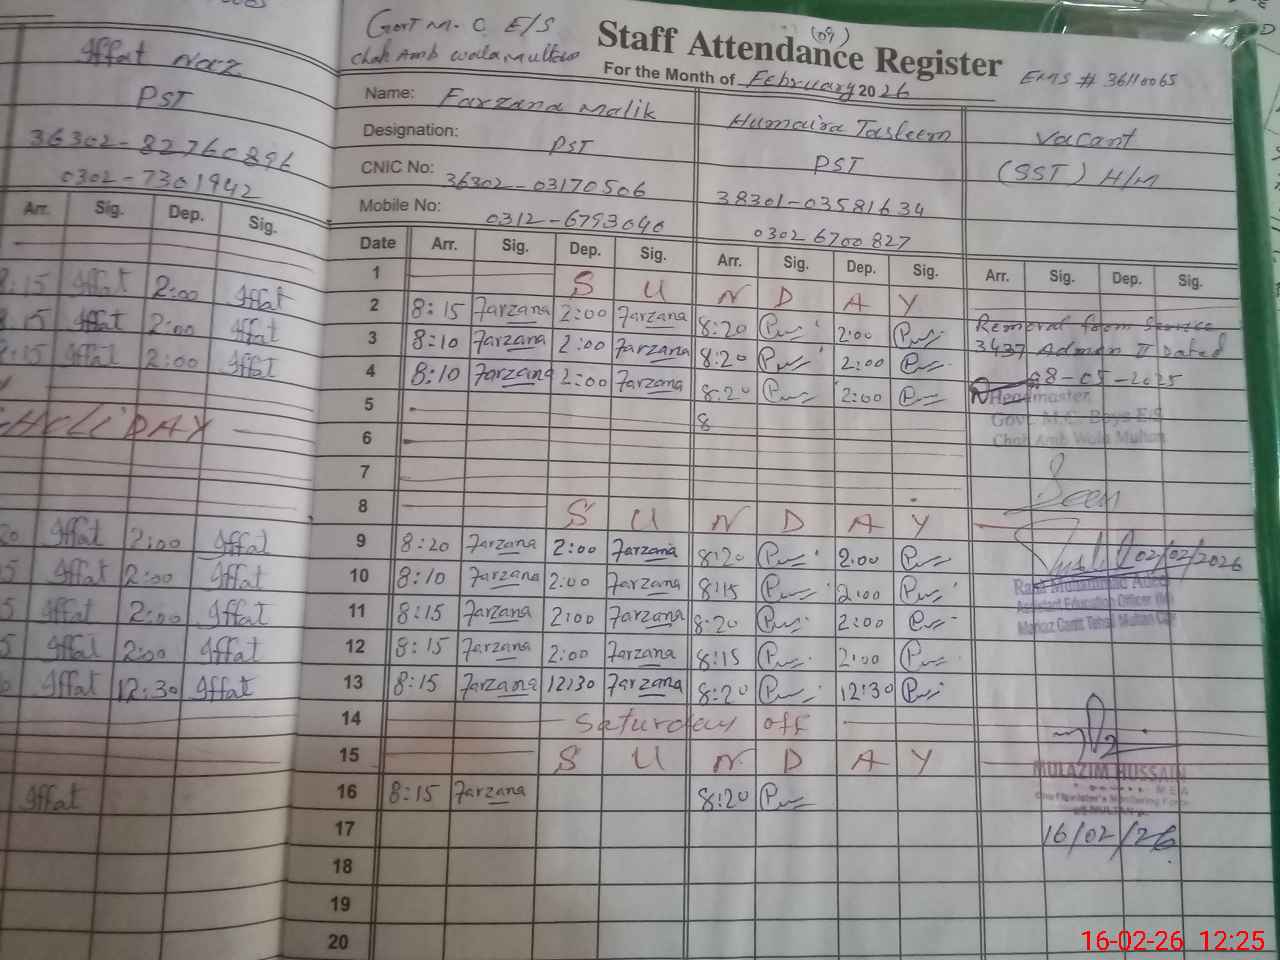 Iffat Naz
PST
36302-82760896
0302-7301942
Arr. Sig. Dep. Sig.
8:15 Iffat 2:00 Iffat
8:15 Iffat 2:00 Iffat
8:15 Iffat 2:00 Iffat
HOLIDAY
Iffat 2:00 Iffat
Iffat 2:00 Iffat
Iffat 2:00 Iffat
Iffat 2:00 Iffat
Iffat 12:30 Iffat
Iffat
Govt M.C. E/S
Chah Amb wala Multan
(09)
Staff Attendance Register
For the Month of February 2026
EMIS # 36110065
Name: Farzana Malik Humaira Tasleem Vacant
Designation: PST PST (SST) H/M
CNIC No: 36302-03170506 38301-03581634
Mobile No: 0312-6793040 0302 6700827
Date Arr. Sig. Dep. Sig. Arr. Sig. Dep. Sig. Arr. Sig. Dep. Sig.
1 S U N D A Y
2 8:15 Farzana 2:00 Farzana 8:20 2:00
3 8:10 Farzana 2:00 Farzana 8:20 2:00
4 8:10 Farzana 2:00 Farzana 8:20 2:00
5 8
6
7
8 S U N D A Y
9 8:20 Farzana 2:00 Farzana 8:20 2:00
10 8:10 Farzana 2:00 Farzana 8:15 2:00
11 8:15 Farzana 2:00 Farzana 8:20 2:00
12 8:15 Farzana 2:00 Farzana 8:15 2:00
13 8:15 Farzana 12:30 Farzana 8:20 12:30
14 Saturday off
15 S U N D A Y
16 8:15 Farzana 8:20
17
18
19
20
Removal from Service
3437 Admon II Dated
08-05-2025
Headmaster
Govt. M.C. Boys E/S
Chah Amb Wala Multan
Seen
02/02/2026
Assistant Education Officer (M)
Markaz Cantt Tehsil Multan City
MULAZIM HUSSAIN
MEA
Chief Minister's Monitoring Force
16/02/26
16-02-26 12:25